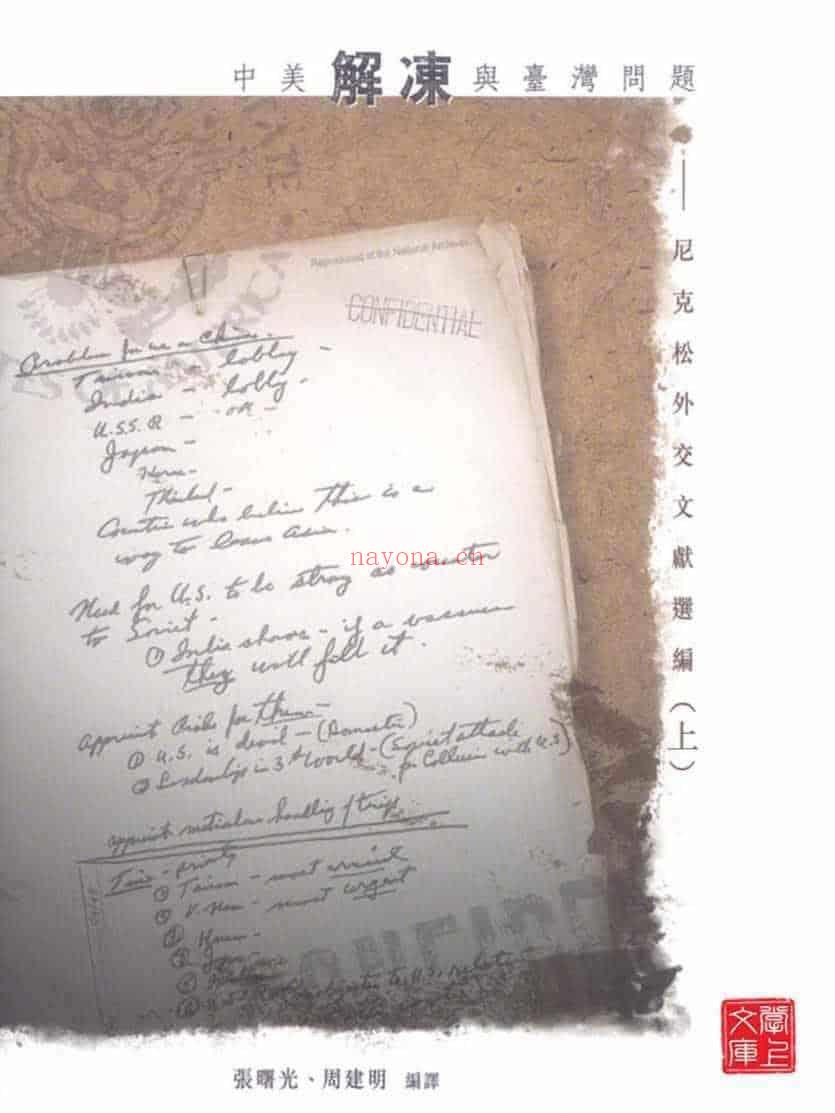 中美解凍與臺灣問題
——尼克松外交文獻選編（上）
Reproduced at the National Archives
CONFIDENTIAL
Taiwan - lobbey -
India - lobby -
U.S.S.R - or -
Japan -
Countries who believe this is a
way to lose Asia.
nayona.cn
Need for U.S. to be strong as counter
to Soviet -
① India shows - if a vacuum
they will fill it.
Appreciate Risks for them -
① U.S. is devil - (Domestic)
② Leadership in 3rd World - (Soviet attack
for Collusion with U.S)
appreciate meticulous handling of trip
① Taiwan - most crucial
② V. Nam - most urgent
③ Korea -
④ Japan -
張曙光、周建明 編譯
學上文庫